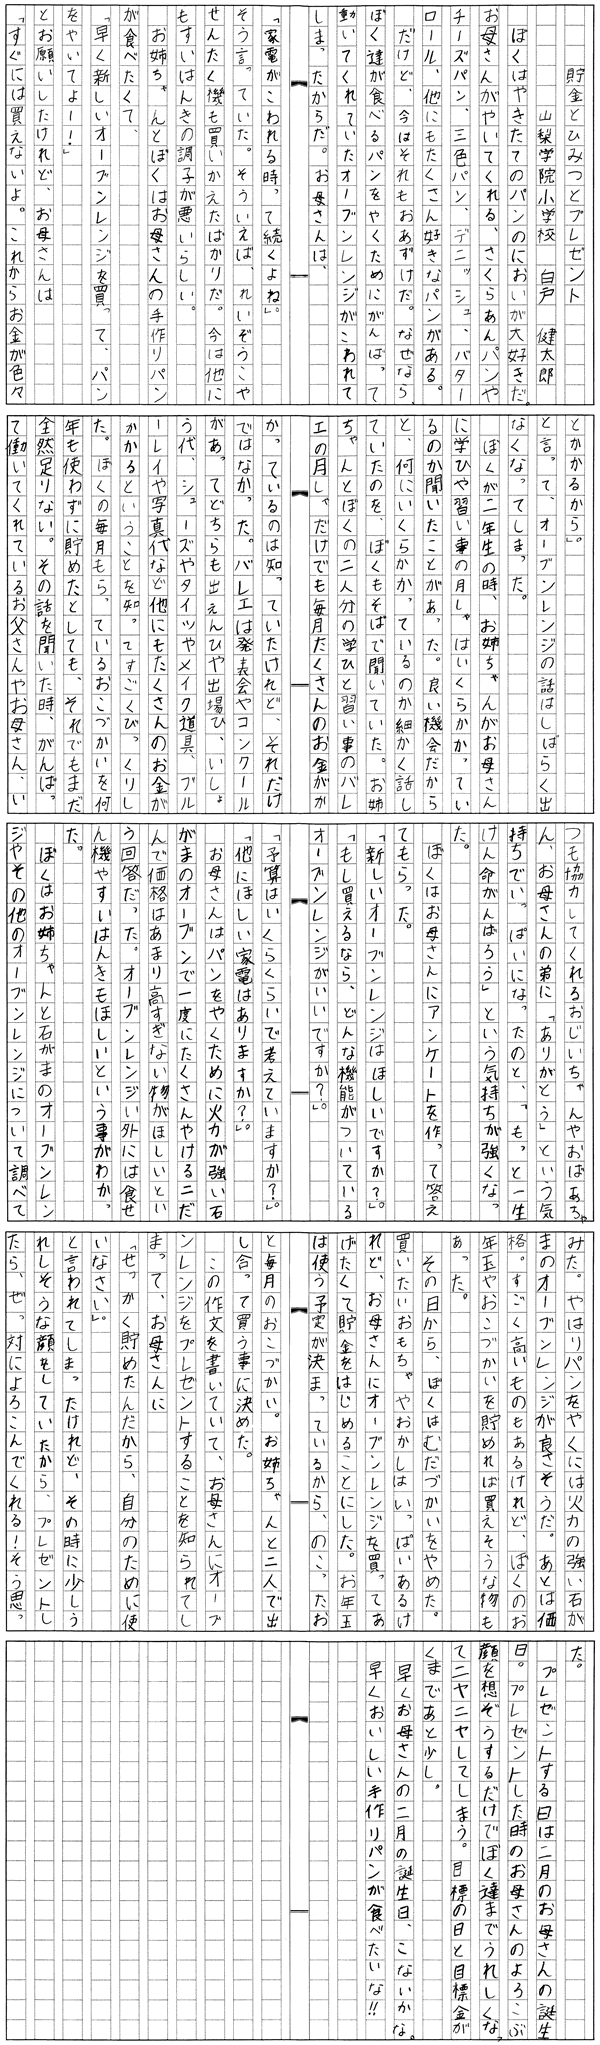 貯金とひみつとプレゼント
山梨学院小学校　白戸　健太郎
ぼくはやきたてのパンのにおいが大好きだ。
お母さんがやいてくれる、さくらあんパンや
チーズパン、三色パン、デニッシュ、バター
ロール、他にもたくさん好きなパンがある。
だけど、今はそれもおあずけだ。なぜなら、
ぼく達が食べるパンをやくためにがんばって
動いてくれていたオーブンレンジがこわれて
しまったからだ。お母さんは、
「家電がこわれる時って続くよね」。
そう言っていた。そういえば、れいぞうこや
せんたく機も買いかえたばかりだ。今は他に
もすいはんきの調子が悪いらしい。
お姉ちゃんとぼくはお母さんの手作りパン
が食べたくて、
「早く新しいオーブンレンジを買って、パン
をやいてよー！」
とお願いしたけれど、お母さんは
「すぐには買えないよ。これからお金が色々
とかかるから」。
と言って、オーブンレンジの話はしばらく出
なくなってしまった。
ぼくが二年生の時、お姉ちゃんがお母さん
に学ひや習い事の月しゃはいくらかかってい
るのか聞いたことがあった。良い機会だから
と、何にいくらかかっているのか細かく話し
ていたのを、ぼくもそばで聞いていた。お姉
ちゃんとぼくの二人分の学ひと習い事のバレ
エの月しゃだけでも毎月たくさんのお金がか
かっているのは知っていたけれど、それだけ
ではなかった。バレエは発表会やコンクール
があってどちらも出えんひや出場ひ、いしょ
う代、シューズやタイツやメイク道具、ブル
ーレイや写真代など他にもたくさんのお金が
かかるということを知ってすごくびっくりし
た。ぼくの毎月もらっているおこづかいを何
年も使わずに貯めたとしても、それでもまだ
全然足りない。その話を聞いた時、がんばっ
て働いてくれているお父さんやお母さん、い
つも協力してくれるおじいちゃんやおばあちゃ
ん、お母さんの弟に「ありがとう」という気
持ちでいっぱいになったのと、「もっと一生
けん命がんばろう」という気持ちが強くなっ
た。
ぼくはお母さんにアンケートを作って答え
てもらった。
「新しいオーブンレンジはほしいですか？」。
「もし買えるなら、どんな機能がついている
オーブンレンジがいいですか？」。
「予算はいくらくらいで考えていますか？」。
「他にほしい家電はありますか？」。
お母さんはパンをやくために火力が強い石
がまのオーブンで一度にたくさんやける二だ
んで価格はあまり高すぎない物がほしいとい
う回答だった。オーブンレンジい外には食せ
ん機やすいはんきもほしいという事がわかっ
た。
ぼくはお姉ちゃんと石がまのオーブンレン
ジやその他のオーブンレンジについて調べて
みた。やはりパンをやくには火力の強い石が
まのオーブンレンジが良さそうだ。あとは価
格。すごく高いものもあるけれど、ぼくのお
年玉やおこづかいを貯めれば買えそうな物も
あった。
その日から、ぼくはむだづかいをやめた。
買いたいおもちゃやおかしはいっぱいあるけ
れど、お母さんにオーブンレンジを買ってあ
げたくて貯金をはじめることにした。お年玉
は使う予定が決まっているから、のこったお
と毎月のおこづかい。お姉ちゃんと二人で出
し合って買う事に決めた。
この作文を書いていて、お母さんにオーブ
ンレンジをプレゼントすることを知られてし
まって、お母さんに
「せっかく貯めたんだから、自分のために使
いなさい」。
と言われてしまったけれど、その時に少しう
れしそうな顔をしていたから、プレゼントし
たら、ぜっ対によろこんでくれる！そう思っ
た。
プレゼントする日は二月のお母さんの誕生
日。プレゼントした時のお母さんのよろこぶ
顔を想ぞうするだけでぼく達までうれしくなっ
てニヤニヤしてしまう。目標の日と目標金が
くまであと少し。
早くお母さんの二月の誕生日、こないかな。
早くおいしい手作りパンが食べたいな!!